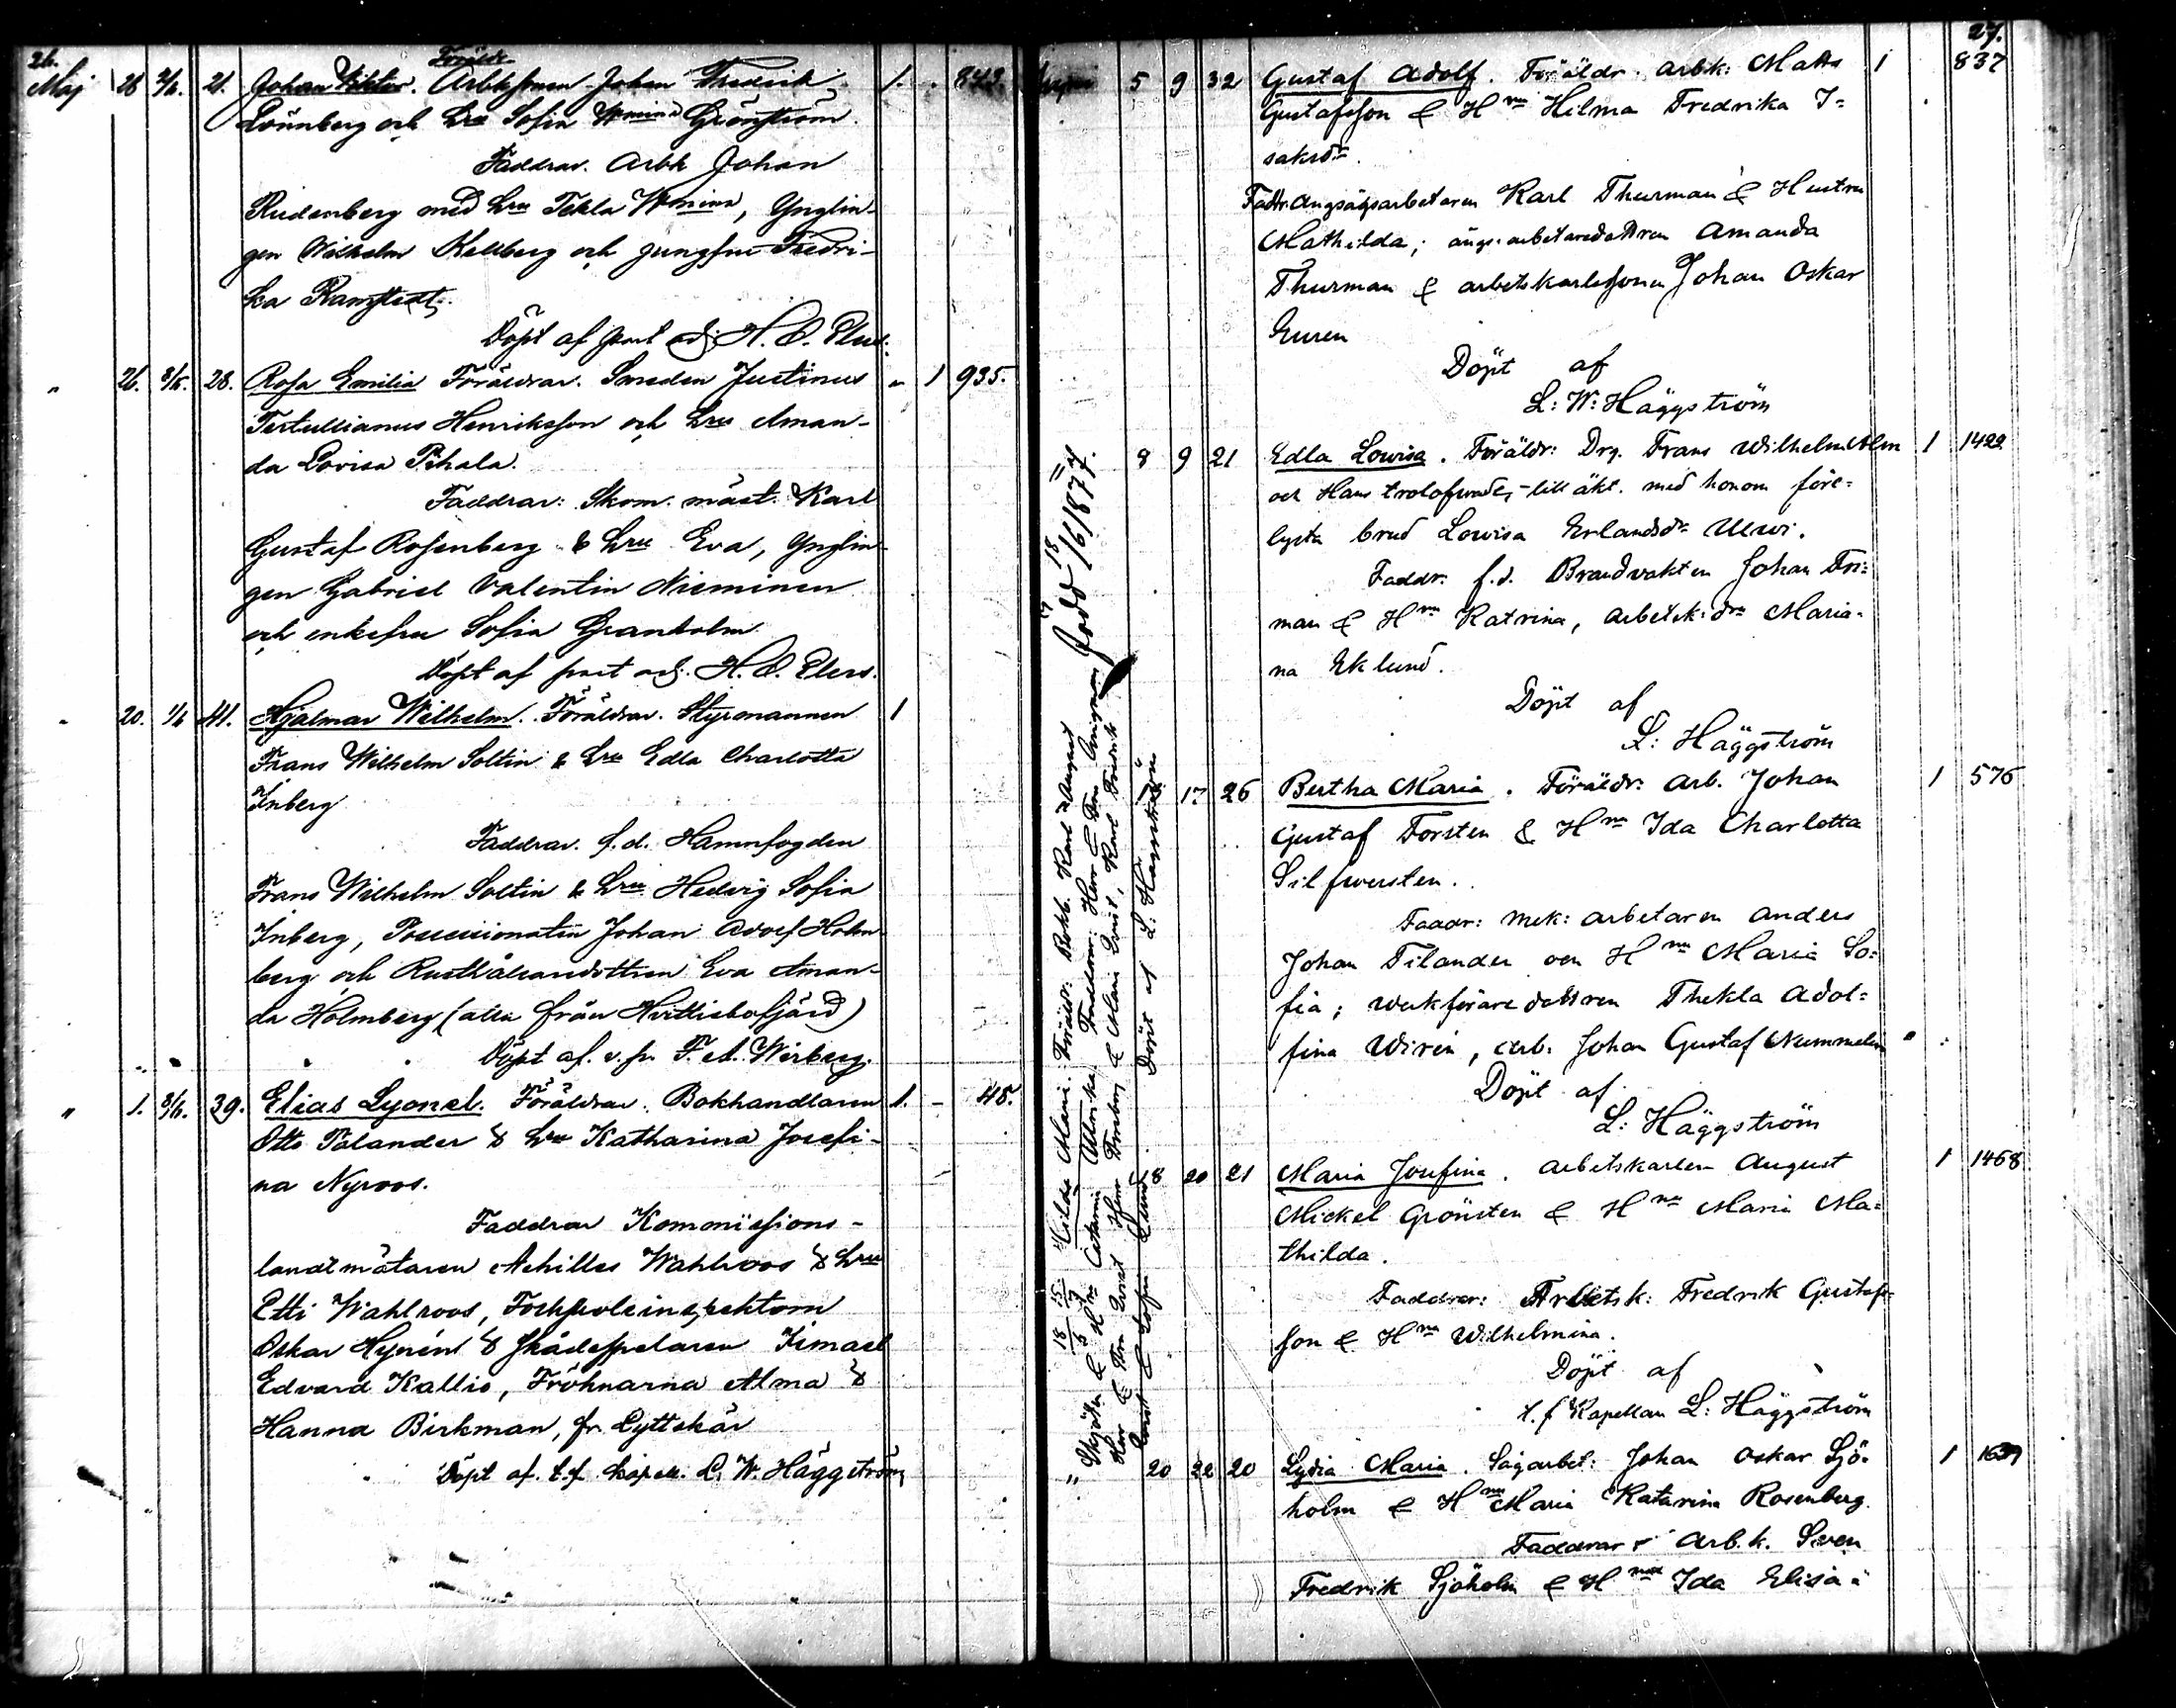 26.
Maj 28 2/6. 21. Johan Viktor. Föräldr. Arbkhsonen Johan Fredrik 1. - 843.
Lönnberg och hru Sofia Wmina Grönström.
Faddrar. Arbk Johan
Rudenberg med hru Tekla Wmina, Ynglin-
gen Wilhelm Kellberg och jungfru Fredri-
ka Ramstedt.
Döpt af past adj. H. O. Elers.
" 26. 3/6. 28. Rosa Emilia Föräldrar. Smeden Justinus " 1 935.
Tertullianus Henriksson och hru Aman-
da Lovisa Pihala.
Faddrar: Skom. mäst. Karl
Gustaf Rosenberg & hru Eva, Ynglin-
gen Gabriel Valentin Nieminen
och enkefru Sofia Granholm.
Döpt af past adj. H. O. Elers.
" 20. 1/6 41. Hjalmar Wilhelm. Föräldrar. Styrmannen 1
Frans Wilhelm Soltin & hru Edla Charlotta
Inberg
Faddrar. f.d. Hamnfogden
Frans Wilhelm Soltin & hru Hedvig Sofia
Inberg, Possessionaten Johan Adolf Holm-
berg och Rusthållaredottren Eva Aman-
da Holmberg (alla från Hvittisbofjärd)
Döpt af. v. pr. F. A. Wirberg.
" 1. 3/6. 39. Elias Lyonel. Föräldrar. Bokhandlaren 1. - 48.
Otto Palander & hru Katharina Josefi-
na Nyroos.
Faddrar Kommissions-
landtmätaren Achilles Wahlroos & hru
Etti Wahlroos, Forstinspektorn
Oskar Hynén & skådespelaren Ismael
Edvard Kallio, Fröknarna Alma &
Hanna Birkman, fr. Lyttskär
Döpt af. t.f. kapell. L. W. Häggström
27.
5 9 32 Gustaf Adolf. Föräldr. arbk: Matts 1 837
Gustafsson & Hru Hilma Fredrika I-
saksdr.
Faddr. Ångsågsarbetaren Karl Thurman & Hustru
Mathilda; ångs.arbetaredottren Amanda
Thurman & arbetskarlssonen Johan Oskar
Euren
Döpt af
L: W: Häggström
8 9 21 Edla Lowisa. Föräldr: Drg. Frans Wilhelm Alm 1 1422
och Hans trolofvade, till äkt. med honom före-
lysta brud Lowisa Erlandsdr Ulwi.
Faddr: f.d. Brandvakten Johan Fri-
man & Hru Katrina, arbetsk: dr Maria-
na Eklund.
Döpt af
L: Häggström
17 26 Bertha Maria. Föräldr: arb. Johan 1 576
Gustaf Forsten & Hru Ida Charlotta
Silfwersten.
Faddr: mek: arbetaren Anders
Johan Tilander och Hru Maria So-
fia; werkföraredottren Thekla Adol-
fina Wirén, arb. Johan Gustaf Nummelin
Döpt af
L: Häggström
18 20 21 Maria Josefina. arbetskarlen August 1 1468
Mickel Grönsten & Hru Maria Ma-
thilda.
Faddrar: Arbetsk: Fredrik Gustaf-
son & Hru Wilhelmina.
Döpt af
t.f Kapellan L: Häggström
" 20 22 20 Lydia Maria. Sågarbet: Johan Oskar Sjö- 1 1639
holm & Hru Maria Katarina Rosenberg.
Faddrar: Arb.k. Sven
Fredrik Sjöholm & Hru Ida Elisa-
Född 18 11/6 1877.
Hilda Maria. Föräldr: Bokh. Karl August
Döpt af L: Häggström